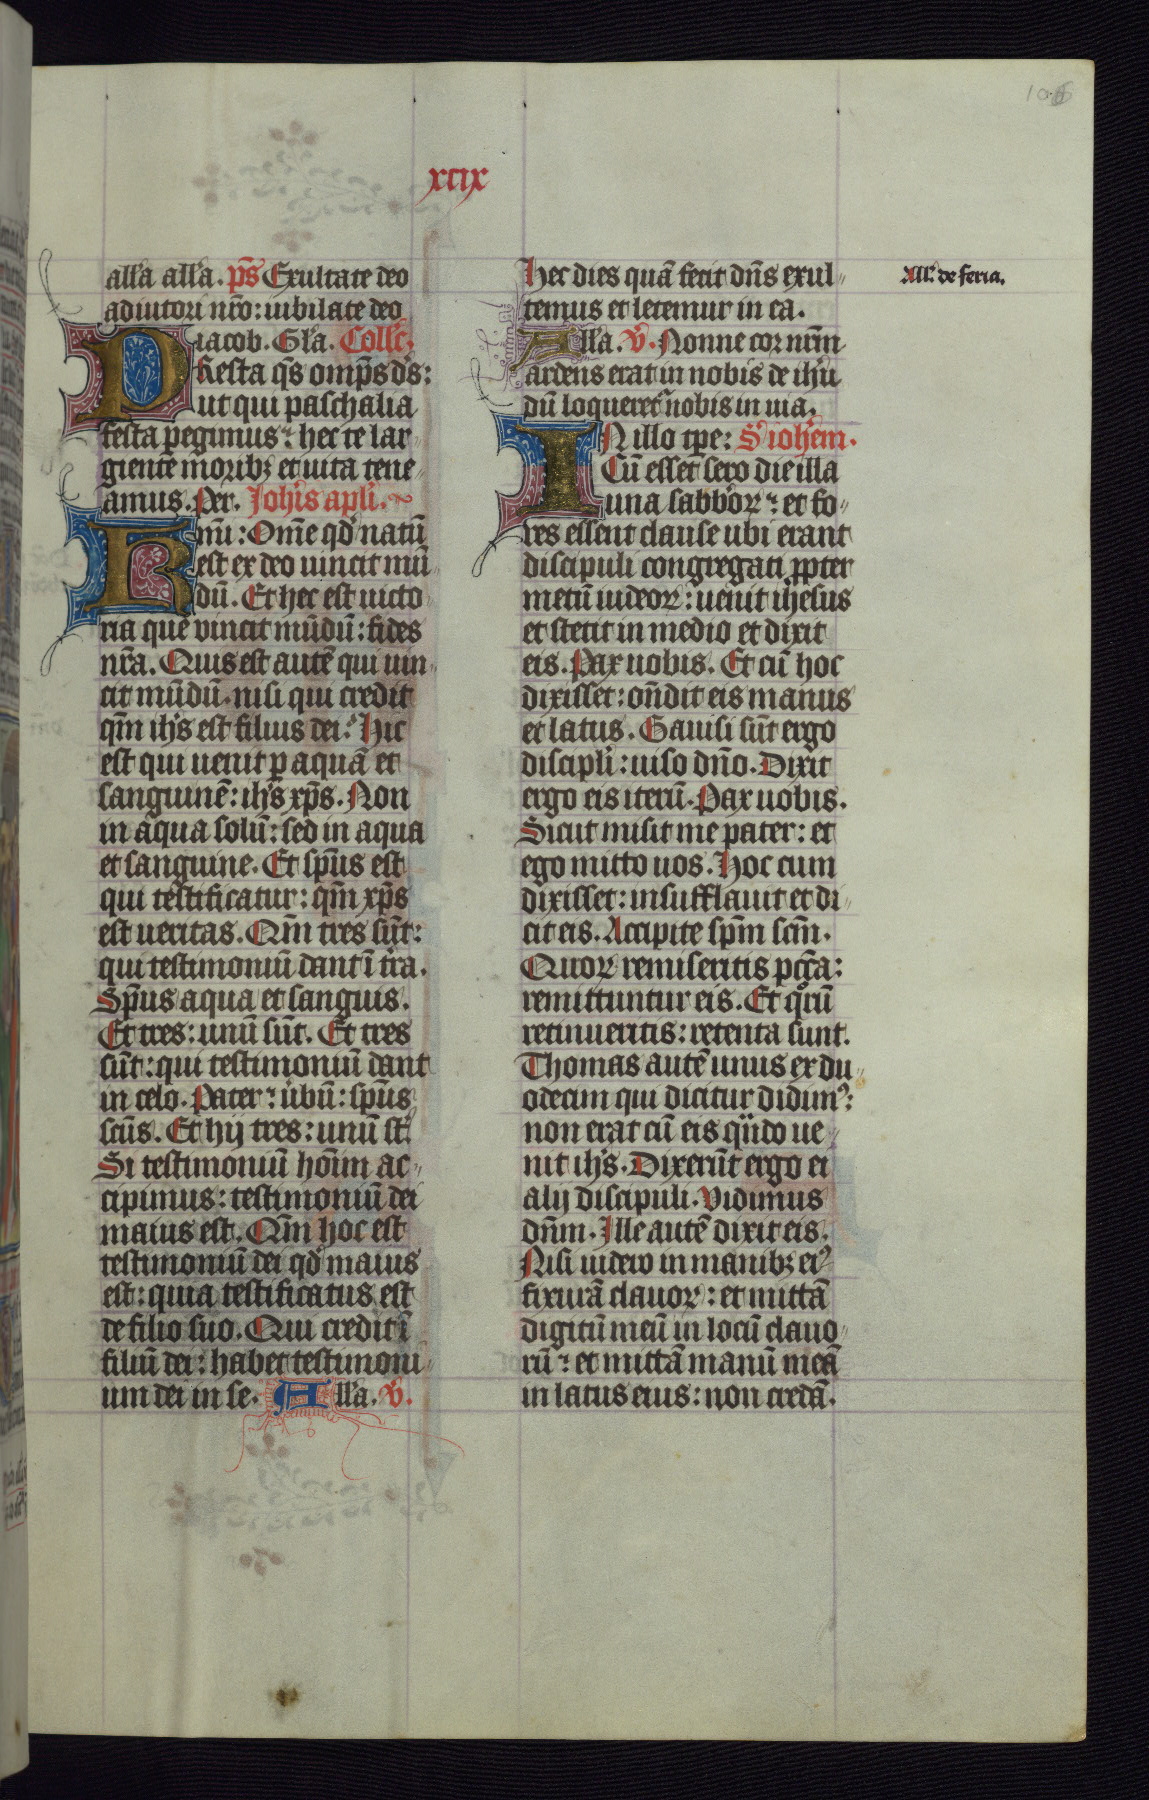 106
xcix
all'a all'a. ps̄ Exultate deo
adiutori nr̄o: iubilate deo
iacob. Gl'a. Coll'c.
P fiesta q̄s omp̄s d's:
ut qui paschalia
festa pegimus: hec te lar
giente moribꝫ et uita tene
amus. Per. Joh'is apl'i.
K mī: Om̄e qd' natū
est ex deo uincit mū
dū. Et hec est uicto
ria que vincit mūdū: fides
nr̄a. Quis est autē qui uin
cit mūdū. nisi qui credit
qm̄ ih's est filius dei. Hic
est qui uenit p aquā et
sanguinē: ih's xp̄s. Non
in aqua solū: sed in aqua
et sanguine. Et sp̄us est
qui testificatur: qm̄ xp̄s
est ueritas. Qm̄ tres sūt:
qui testimoniū dant ī tr̄a.
Sp̄us aqua et sanguis.
Et tres: unū sūt. Et tres
sūt: qui testimoniū dant
in celo. Pater: ūbū: sp̄us
sc̄us. Et hij tres: unū st̄.
Si testimoniū hoīm ac
cipimus: testimoniū dei
maius est. Qm̄ hoc est
testimoniū dei qd' maius
est: quia testificatus est
de filio suo. Qui credit ī
filiū dei: habet testimoni
um dei in se. All'a. V.
Hec dies quā fecit dn̄s exul
temus et letemur in ea.
All'a. V. Nonne cor nr̄m
ardens erat in nobis de ih'u
dū loqueret' nobis in uia.
IN illo tpe: S' ioh'em.
Cū esset sero die illa
una sabb'oꝝ: et fo
res essent clause ubi erant
discipuli congregati ꝓpter
metū iudeoꝝ: uenit ihesus
et stetit in medio et dixit
eis. Pax uobis. Et cū hoc
dixisset: on̄dit eis manus
et latus. Gauisi sūt ergo
discipl'i: uiso dn̄o. Dixit
ergo eis iterū. Pax uobis.
Sicut misit me pater: et
ego mitto uos. Hoc cum
dixisset: insufflauit et di
cit eis. Accipite sp̄m sc̄m.
Quoꝝ remiseritis pcc̄a:
remittuntur eis. Et q'rū
retinueritis: retenta sunt.
Thomas autē unus ex du
odecim qui dicitur didimꝰ:
non erat cū eis qn̄do ue
nit ih's. Dixerūt ergo ei
alij discipuli. Vidimus
dn̄m. Ille autē dixit eis.
Nisi uidero in manibꝫ eiꝰ
fixurā clauoꝝ: et mittā
digitū meū in locū clauo
rū: et mittā manū meā
in latus eius: non credā.
All'. de feria.